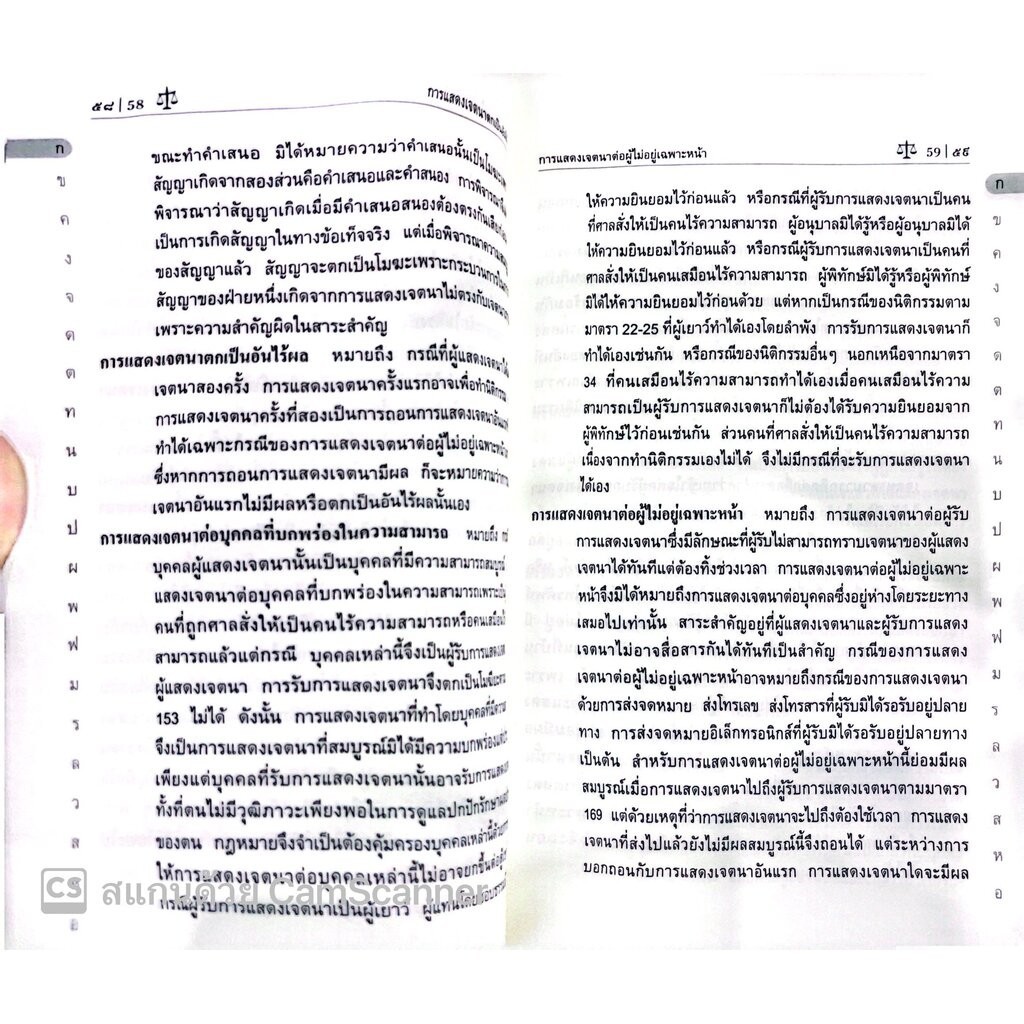 ๕๘ | 58
การแสดงเจตนาตกเป็นอันไร้ผล
ขณะทำคำเสนอ มิได้หมายความว่าคำเสนอนั้นเป็นโมฆะ
สัญญาเกิดจากสองส่วนคือคำเสนอและคำสนอง การพิจารณา
พิจารณาว่าสัญญาเกิดเมื่อมีคำเสนอสนองต้องตรงกัน
เป็นการเกิดสัญญาในทางข้อเท็จจริง แต่เมื่อพิจารณาความ
ของสัญญาแล้ว สัญญาจะตกเป็นโมฆะเพราะกระบวนการ
สัญญาของฝ่ายหนึ่งเกิดจากการแสดงเจตนาไม่ตรงกับเจตนา
เพราะความสำคัญผิดในสาระสำคัญ
การแสดงเจตนาตกเป็นอันไร้ผล หมายถึง กรณีที่ผู้แสดงเจตนา
เจตนาสองครั้ง การแสดงเจตนาครั้งแรกอาจเพื่อทำนิติกรรม
การแสดงเจตนาครั้งที่สองเป็นการถอนการแสดงเจตนา
ทำได้เฉพาะกรณีของการแสดงเจตนาต่อผู้ไม่อยู่เฉพาะหน้า
ซึ่งหากการถอนการแสดงเจตนามีผล ก็จะหมายความว่า
เจตนาอันแรกไม่มีผลหรือตกเป็นอันไร้ผลนั้นเอง
การแสดงเจตนาต่อบุคคลที่บกพร่องในความสามารถ หมายถึง
บุคคลผู้แสดงเจตนานั้นเป็นบุคคลที่มีความสามารถสมบูรณ์
แสดงเจตนาต่อบุคคลที่บกพร่องในความสามารถเพราะ
คนที่ถูกศาลสั่งให้เป็นคนไร้ความสามารถหรือคนเสมือนไร้
สามารถแล้วแต่กรณี บุคคลเหล่านี้จึงเป็นผู้รับการแสดง
ผู้แสดงเจตนา การรับการแสดงเจตนาจึงตกเป็นโมฆียะ
153 ไม่ได้ ดังนั้น การแสดงเจตนาที่ทำโดยบุคคลที่มีความ
จึงเป็นการแสดงเจตนาที่สมบูรณ์มิได้มีความบกพร่อง
เพียงแต่บุคคลที่รับการแสดงเจตนานั้นอาจรับการแสดง
ทั้งที่ตนไม่มีวุฒิภาวะเพียงพอในการดูแลปกปักรักษา
ของตน กฎหมายจึงจำเป็นต้องคุ้มครองบุคคลเหล่านี้
ให้การแสดงเจตนาต่อบุคคลเหล่านี้ไม่อาจยกขึ้นต่อสู้
กรณีผู้รับการแสดงเจตนาเป็นผู้เยาว์ ผู้แทนโดย
ก
ข
ค
ง
จ
ด
ต
ท
น
บ
ป
ผ
พ
ฟ
ม
ร
ล
ว
ส
CS สแกนด้วย CamScanner
การแสดงเจตนาต่อผู้ไม่อยู่เฉพาะหน้า
59 | ๕๙
ให้ความยินยอมไว้ก่อนแล้ว หรือกรณีที่ผู้รับการแสดงเจตนาเป็นคน
ที่ศาลสั่งให้เป็นคนไร้ความสามารถ ผู้อนุบาลมิได้รู้หรือผู้อนุบาลมิได้
ให้ความยินยอมไว้ก่อนแล้ว หรือกรณีผู้รับการแสดงเจตนาเป็นคนที่
ศาลสั่งให้เป็นคนเสมือนไร้ความสามารถ ผู้พิทักษ์มิได้รู้หรือผู้พิทักษ์
มิได้ให้ความยินยอมไว้ก่อนด้วย แต่หากเป็นกรณีของนิติกรรมตาม
มาตรา 22-25 ที่ผู้เยาว์ทำได้เองโดยลำพัง การรับการแสดงเจตนาก็
ทำได้เองเช่นกัน หรือกรณีของนิติกรรมอื่นๆ นอกเหนือจากมาตรา
34 ที่คนเสมือนไร้ความสามารถทำได้เองเมื่อคนเสมือนไร้ความ
สามารถเป็นผู้รับการแสดงเจตนาก็ไม่ต้องได้รับความยินยอมจาก
ผู้พิทักษ์ไว้ก่อนเช่นกัน ส่วนคนที่ศาลสั่งให้เป็นคนไร้ความสามารถ
เนื่องจากทำนิติกรรมเองไม่ได้ จึงไม่มีกรณีที่จะรับการแสดงเจตนา
ได้เอง
การแสดงเจตนาต่อผู้ไม่อยู่เฉพาะหน้า หมายถึง การแสดงเจตนาต่อผู้รับ
การแสดงเจตนาซึ่งมีลักษณะที่ผู้รับไม่สามารถทราบเจตนาของผู้แสดง
เจตนาได้ทันทีแต่ต้องทิ้งช่วงเวลา การแสดงเจตนาต่อผู้ไม่อยู่เฉพาะ
หน้าจึงมิได้หมายถึงการแสดงเจตนาต่อบุคคลซึ่งอยู่ห่างโดยระยะทาง
เสมอไปเท่านั้น สาระสำคัญอยู่ที่ผู้แสดงเจตนาและผู้รับการแสดง
เจตนาไม่อาจสื่อสารกันได้ทันทีเป็นสำคัญ กรณีของการแสดง
เจตนาต่อผู้ไม่อยู่เฉพาะหน้าอาจหมายถึงกรณีของการแสดงเจตนา
ด้วยการส่งจดหมาย ส่งโทรเลข ส่งโทรสารที่ผู้รับมิได้รอรับอยู่ปลาย
ทาง การส่งจดหมายอิเล็กทรอนิกส์ที่ผู้รับมิได้รอรับอยู่ปลายทาง
เป็นต้น สำหรับการแสดงเจตนาต่อผู้ไม่อยู่เฉพาะหน้านี้ย่อมมีผล
สมบูรณ์เมื่อการแสดงเจตนาไปถึงผู้รับการแสดงเจตนาตามมาตรา
169 แต่ด้วยเหตุที่ว่าการแสดงเจตนาจะไปถึงต้องใช้เวลา การแสดง
เจตนาที่ส่งไปแล้วยังไม่มีผลสมบูรณ์นี้จึงถอนได้ แต่ระหว่างการ
บอกถอนกับการแสดงเจตนาอันแรก การแสดงเจตนาใดจะมีผล
ก
ข
ค
ง
จ
ด
ต
ท
น
บ
ป
ผ
พ
ฟ
ม
ร
ล
ว
ส
ห
อ